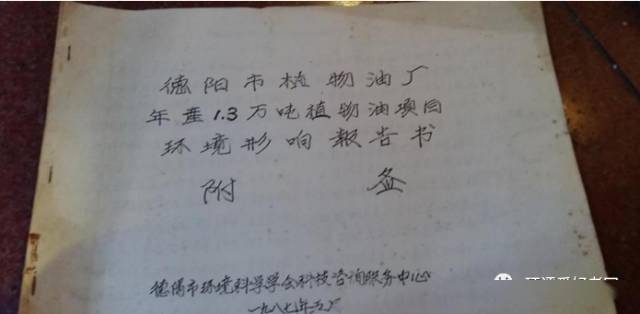 德阳市植物油厂
年產1.3万吨植物油项目
环境影响報告书
附
德阳市环境科学学会科技咨询服务中心
一九八七年五